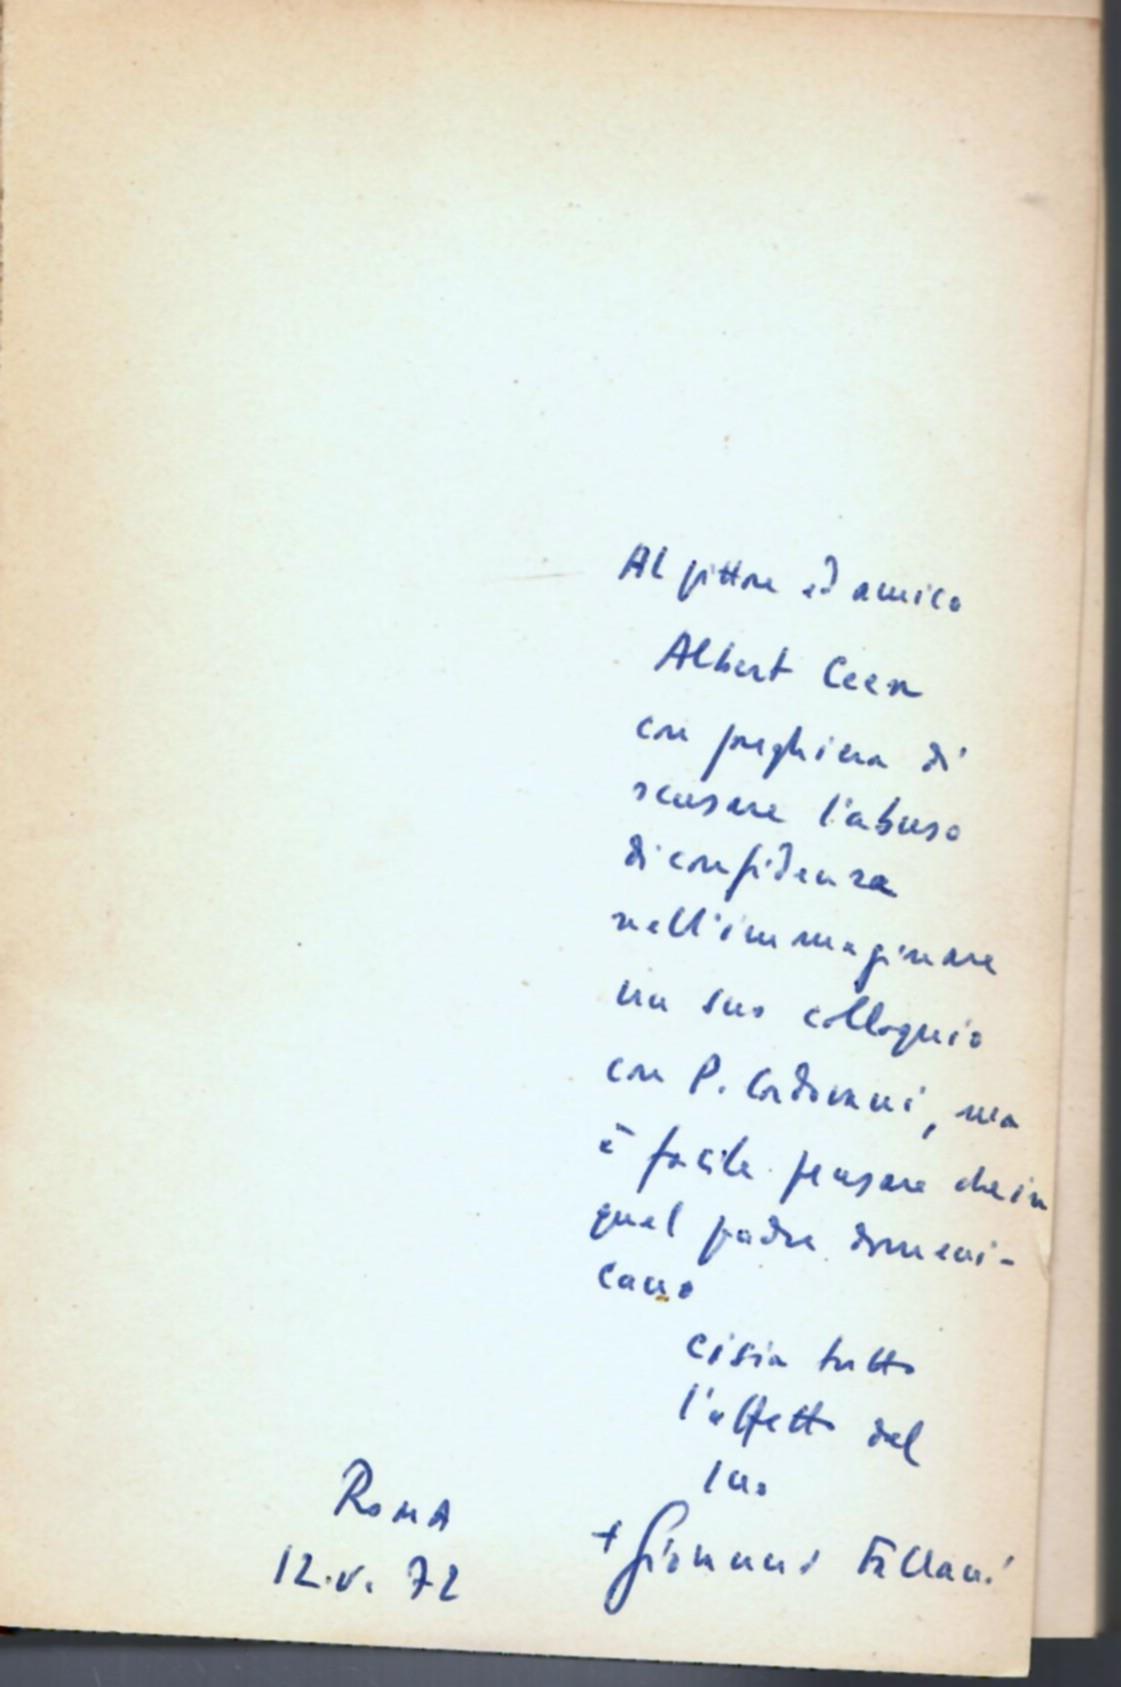 Al pittore ed amico
Albert Ceen
con preghiera di
scusare l'abuso
di confidenza
nell'immaginare
un suo colloquio
con P. Cordovani, ma
è facile pensare che in
quel padre domeni-
cano
ci sia tutto
l'affetto del
suo
+ Giovanni Fallani
Roma
12.V.72